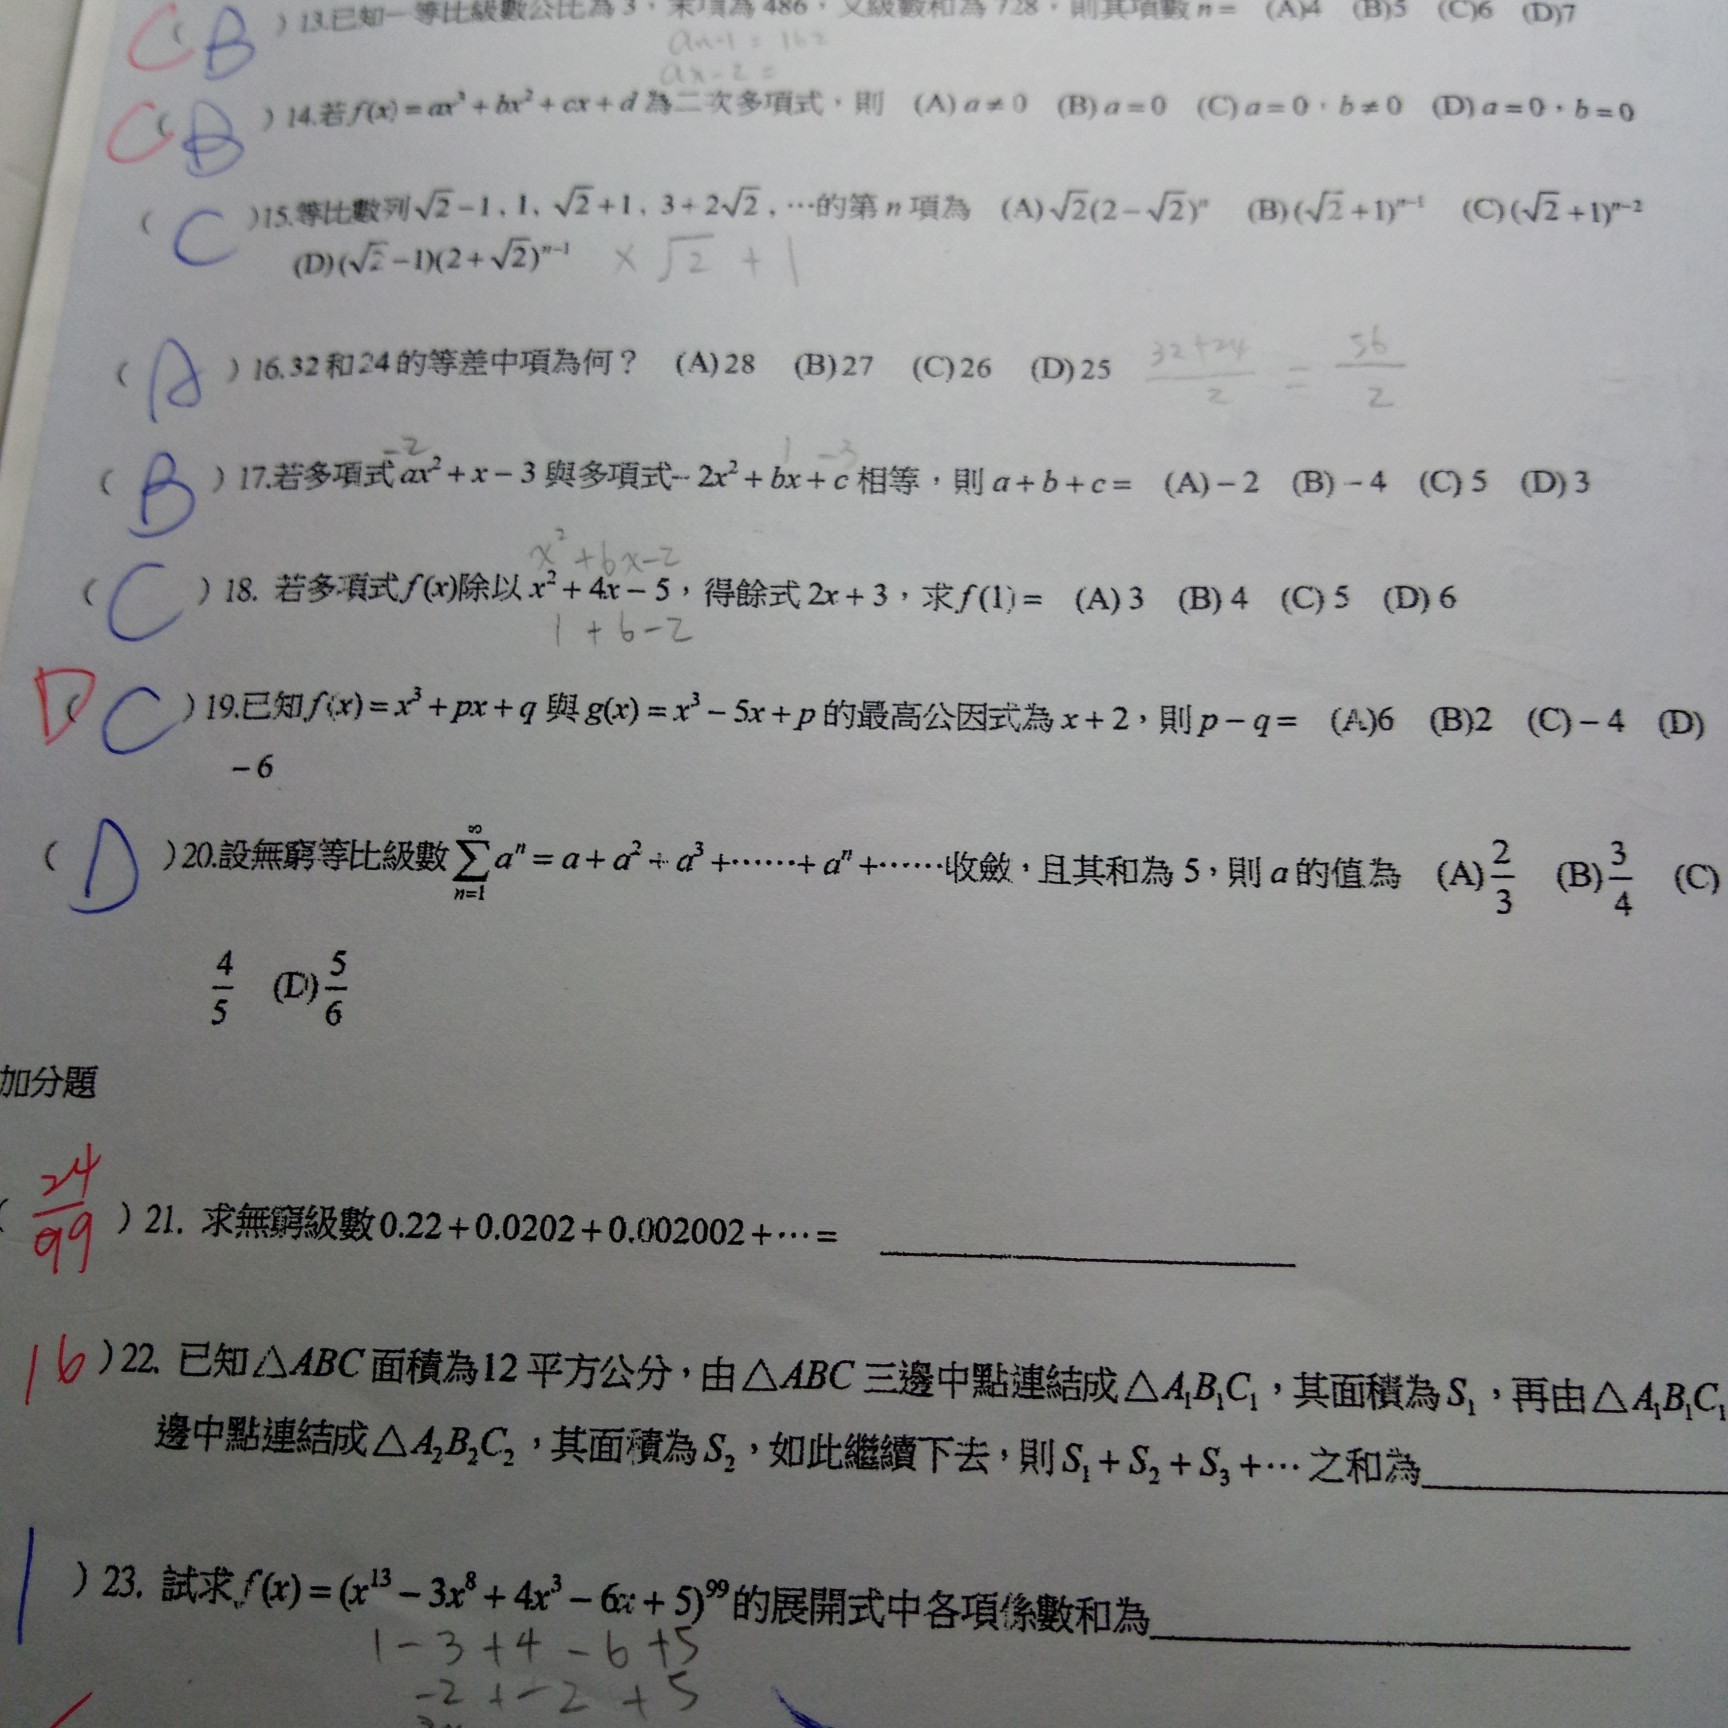 C ( B ) 13.已知一等比級數公比為 3，末項為 486，又級數和為 728，則其項數 n = (A)4 (B)5 (C)6 (D)7
an-1 = 162
an-2 =
C ( B ) 14.若 f(x) = ax³ + bx² + cx + d 為二次多項式，則 (A) a ≠ 0 (B) a = 0 (C) a = 0，b ≠ 0 (D) a = 0，b = 0
( C )15.等比數列 √2 − 1, 1, √2 + 1, 3 + 2√2, …的第 n 項為 (A) √2(2 − √2)ⁿ (B) (√2 + 1)ⁿ⁻¹ (C) (√2 + 1)ⁿ⁻²
(D) (√2 − 1)(2 + √2)ⁿ⁻¹ × √2 + 1
( A ) 16.32 和 24 的等差中項為何？ (A) 28 (B) 27 (C) 26 (D) 25 (32+24)/2 = 56/2
-2 1 -3
( B ) 17.若多項式 ax² + x − 3 與多項式 − 2x² + bx + c 相等，則 a + b + c = (A) − 2 (B) − 4 (C) 5 (D) 3
x² + 6x - 2
( C ) 18. 若多項式 f(x)除以 x² + 4x − 5，得餘式 2x + 3，求 f(1) = (A) 3 (B) 4 (C) 5 (D) 6
1 + 6 - 2
D ( C ) 19.已知 f(x) = x³ + px + q 與 g(x) = x³ − 5x + p 的最高公因式為 x + 2，則 p − q = (A)6 (B)2 (C) − 4 (D)
− 6
( D ) 20.設無窮等比級數 ∑_{n=1}^{∞} aⁿ = a + a² + a³ + ⋯⋯ + aⁿ + ⋯⋯收斂，且其和為 5，則 a 的值為 (A) 2/3 (B) 3/4 (C)
4/5 (D) 5/6
加分題
( 24/99 ) 21. 求無窮級數 0.22 + 0.0202 + 0.002002 + ⋯ = ____
16 ) 22. 已知△ABC 面積為12 平方公分，由△ABC 三邊中點連結成△A₁B₁C₁，其面積為 S₁，再由△A₁B₁C₁
邊中點連結成△A₂B₂C₂，其面積為 S₂，如此繼續下去，則 S₁ + S₂ + S₃ + ⋯ 之和為____
1 ) 23. 試求 f(x) = (x¹³ − 3x⁸ + 4x³ − 6x + 5)⁹⁹ 的展開式中各項係數和為____
1 - 3 + 4 - 6 + 5
-2 + -2 + 5